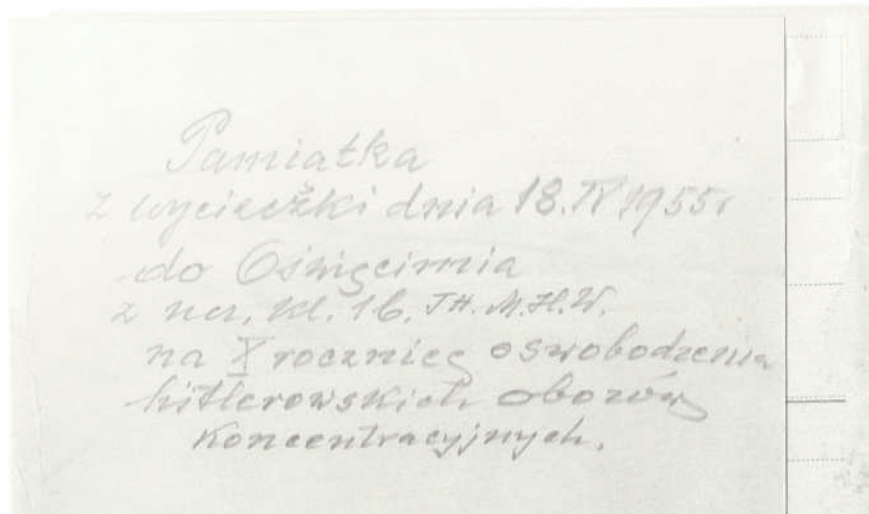 Pamiatka
z wycieczki dnia 18.IV 1955r
do Oświęcimia
z ucz. kl. 1b. TH. M.H.W.
na X rocznicę oswobodzenia
hitlerowskich obozów
koncentracyjnych.